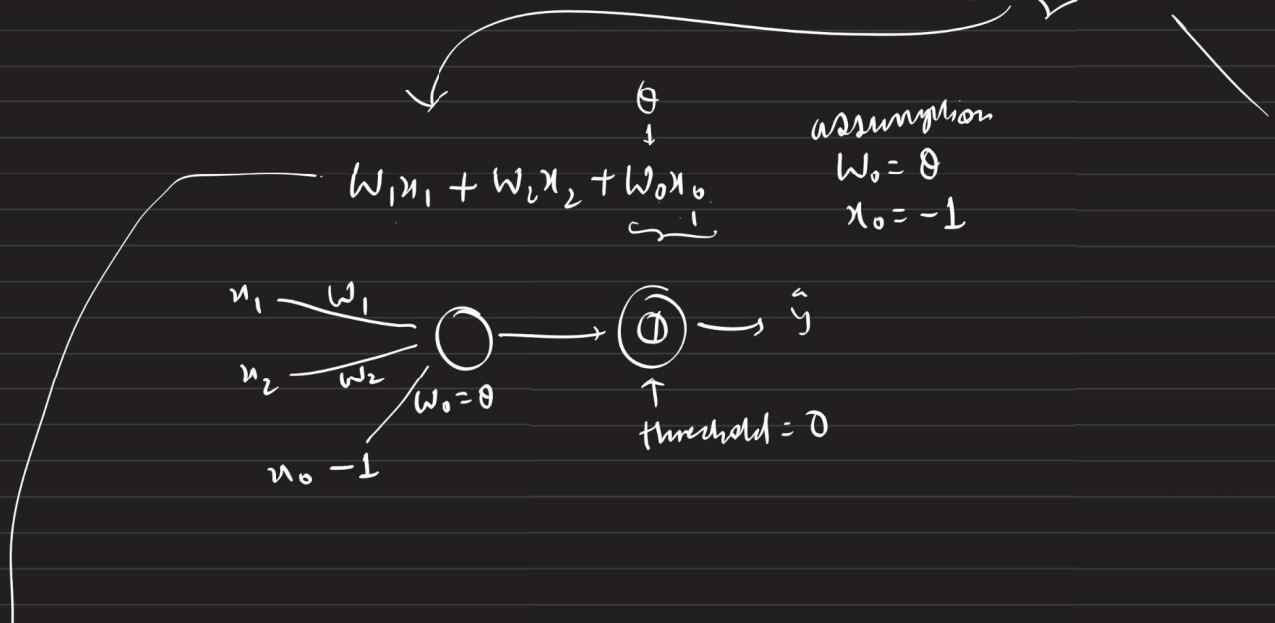 θ
↓
W₁x₁ + W₂x₂ + W₀x₀
assumption
W₀ = θ
x₀ = -1
x₁ W₁
x₂ W₂
W₀ = θ
x₀ -1
ŷ
↑
threshold = 0